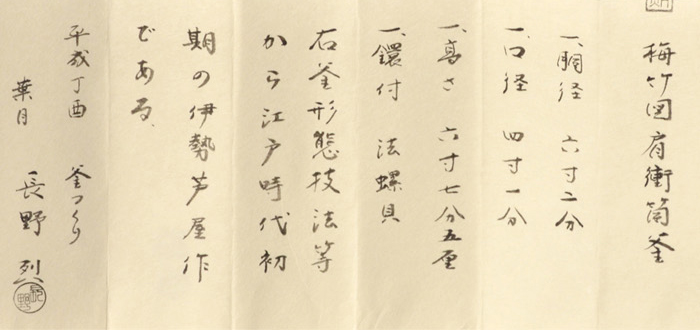 梅竹図肩衝筒釜
一、胴径 六寸二分
一、口径 四寸一分
一、高さ 六寸七分五厘
一、鐶付 法螺貝
右釜形態技法等
から江戸時代初
期の伊勢芦屋作
である
平成丁酉 釜つくり
葉月 長野 烈